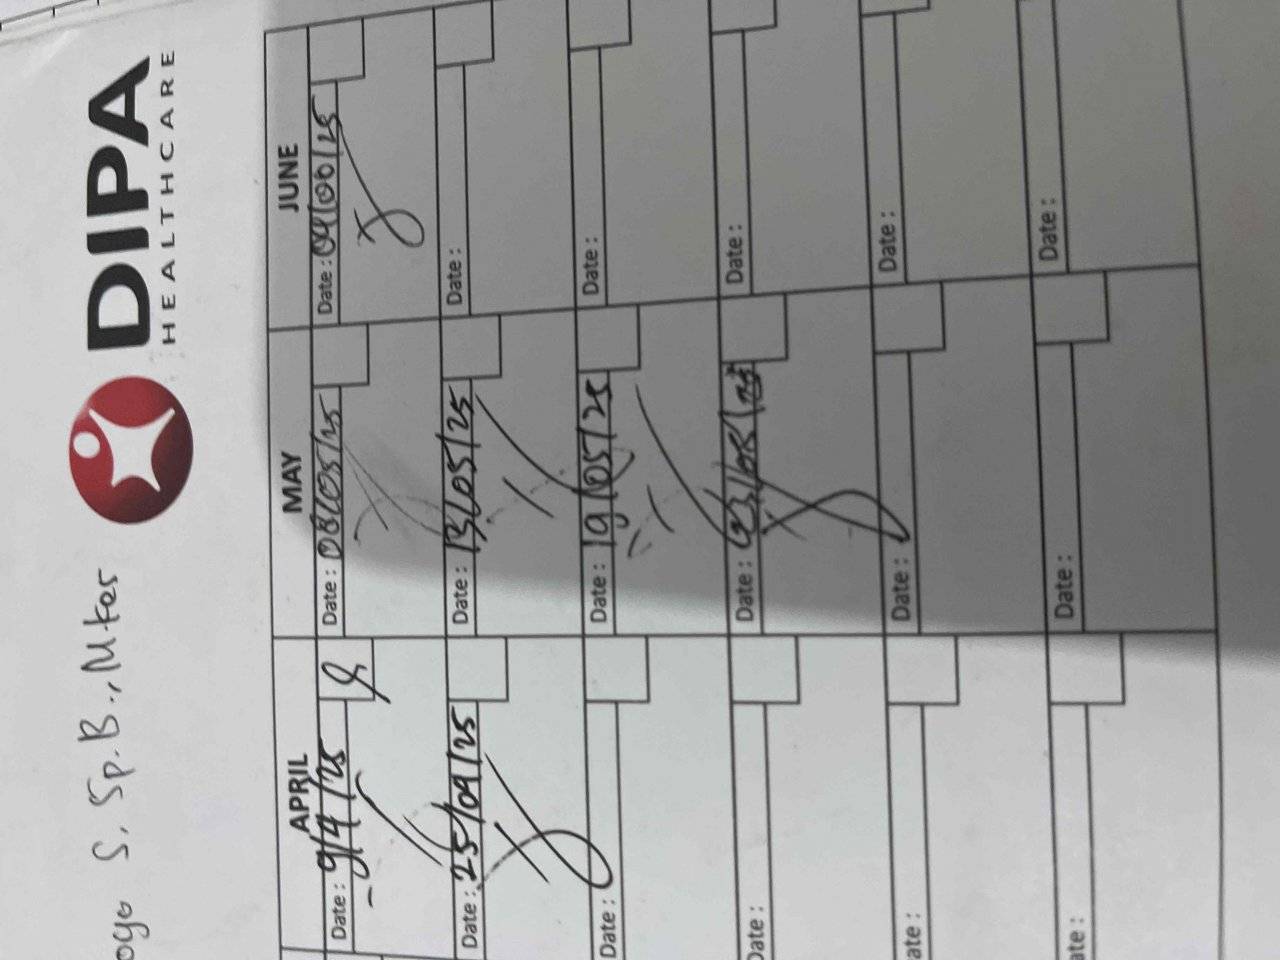 ogo S. Sp.B., M.Kes
DIPA
HEALTHCARE
APRIL MAY JUNE
Date : 9/4/25 Date : 08/05/25 Date : 04/06/25
Date : 25/04/25 Date : 13/05/25 Date :
Date : Date : 19/05/25 Date :
Date : Date : Date :
ate : Date : Date :
ate : Date : Date :